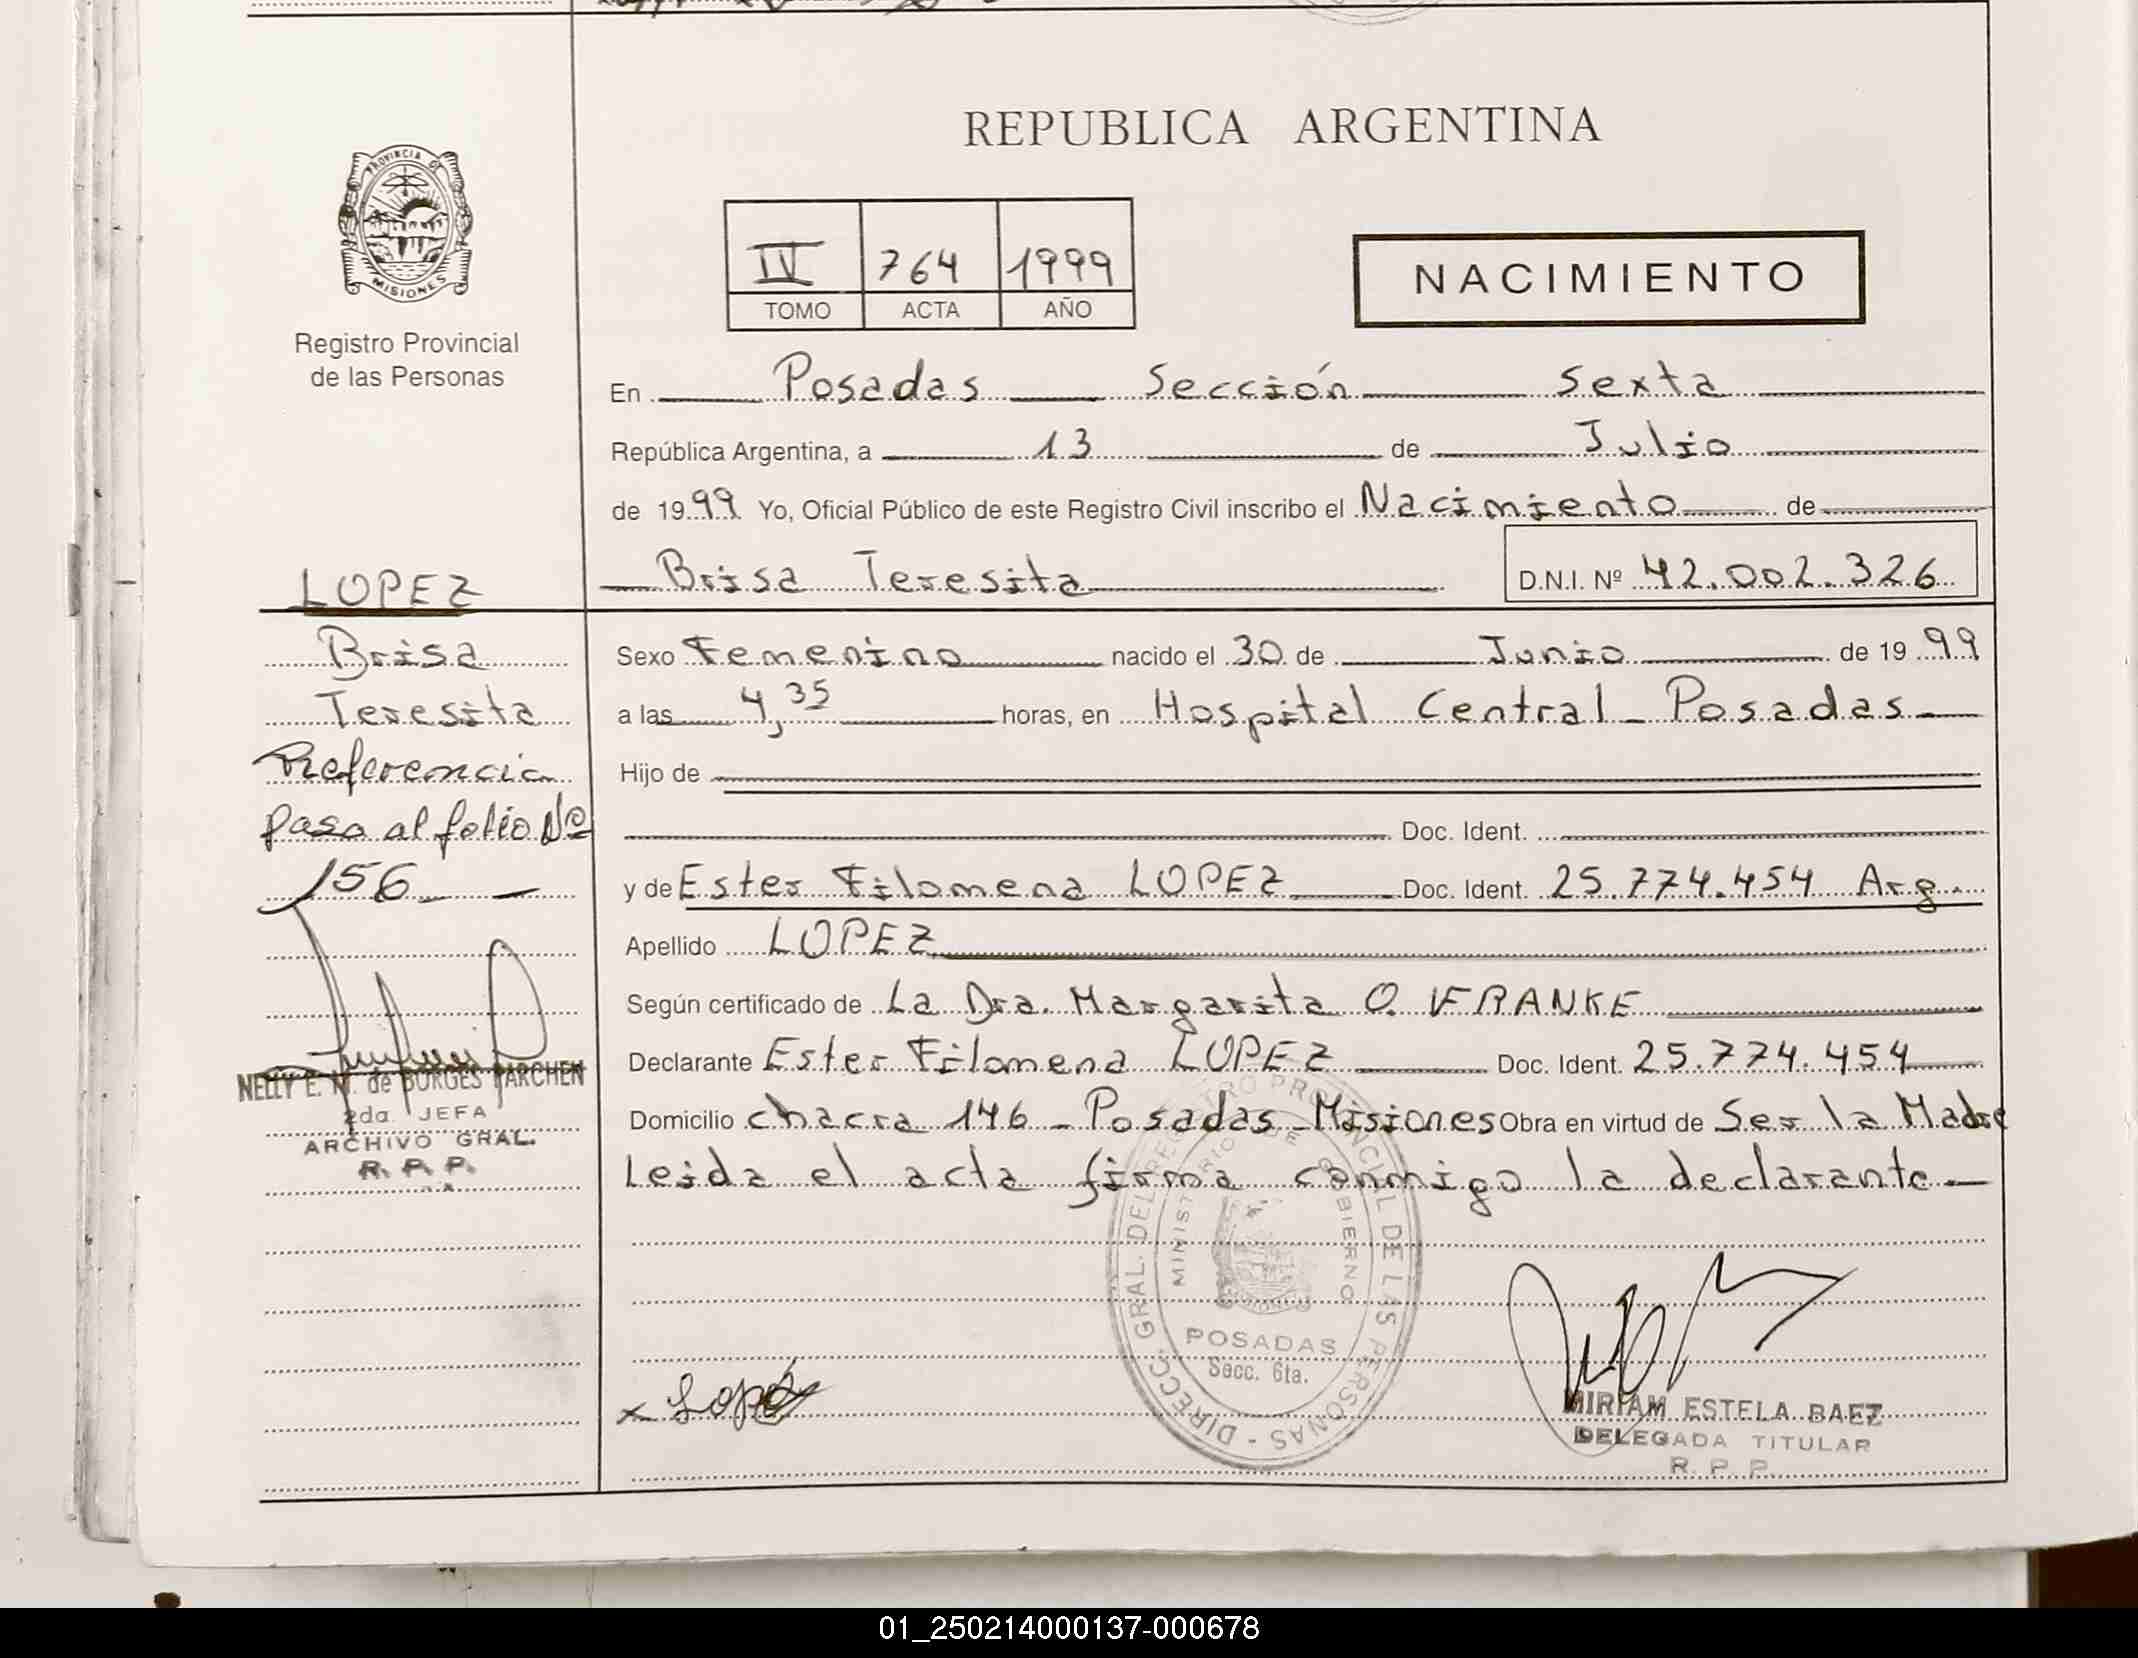 REPUBLICA ARGENTINA
PROVINCIA DE
MISIONES
Registro Provincial
de las Personas
IV 764 1999
TOMO ACTA AÑO
NACIMIENTO
En Posadas Sección Sexta
República Argentina, a 13 de Julio
de 1999 Yo, Oficial Público de este Registro Civil inscribo el Nacimiento de
Brisa Teresita D.N.I. Nº 42.002.326
LOPEZ
Brisa
Teresita
Referencia
pasa al folio Nº
156
NELLY E. M. de BORGES PARCHEN
2da. JEFA
ARCHIVO GRAL.
R. P. P.
Sexo Femenino nacido el 30 de Junio de 1999
a las 4,35 horas, en Hospital Central - Posadas
Hijo de
Doc. Ident.
y de Ester Filomena LOPEZ Doc. Ident. 25.774.454 Arg.
Apellido LOPEZ
Según certificado de La Dra. Margarita O. FRANKE
Declarante Ester Filomena LOPEZ Doc. Ident. 25.774.454
Domicilio chacra 146 - Posadas - Misiones Obra en virtud de Ser la Madre
Leida el acta firma conmigo la declarante
DIRECC. GRAL. DEL REGISTRO PROVINCIAL DE LAS PERSONAS
MINISTERIO DE GOBIERNO
POSADAS
Secc. 6ta.
x Lopez
MIRIAM ESTELA BAEZ
DELEGADA TITULAR
R. P. P.
01_250214000137-000678